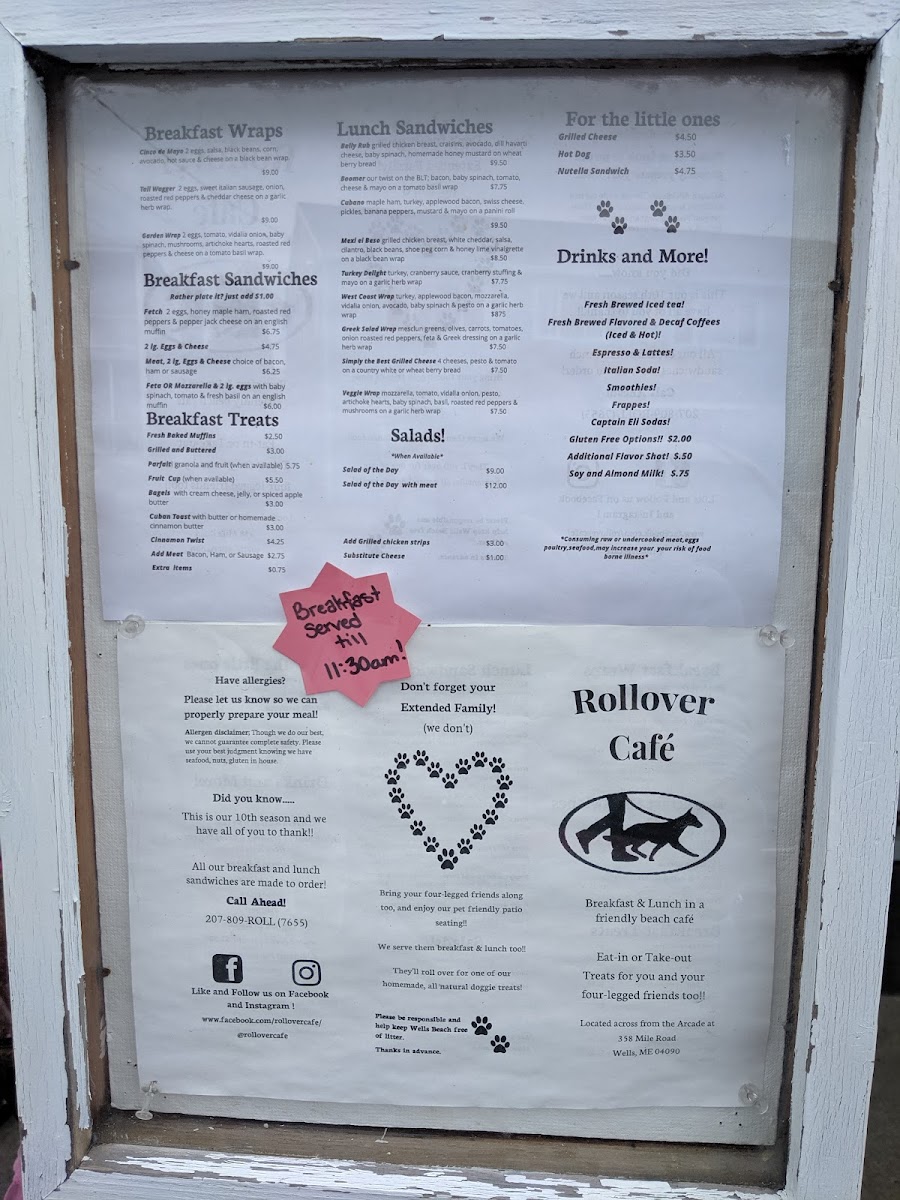 Breakfast Wraps
Cinco De Mayo 2 eggs, salsa, black beans, corn,
avocado, hot sauce & cheese on a black bean wrap.
$9.00
Tail Wagger 2 eggs, sweet italian sausage, onion,
roasted red peppers & cheddar cheese on a garlic
herb wrap.
$9.00
Garden Wrap 2 eggs, tomato, vidalia onion, baby
spinach, mushrooms, artichoke hearts, roasted red
peppers & cheese on a tomato basil wrap.
$9.00
Breakfast Sandwiches
Rather plate it? Just add $1.00
Fetch 2 eggs, honey maple ham, roasted red
peppers & pepper jack cheese on an english
muffin $6.75
2 lg. Eggs & Cheese $4.75
Meat, 2 lg, Eggs & Cheese choice of bacon,
ham or sausage $6.25
Feta OR Mozzarella & 2 lg. eggs with baby
spinach, tomato & fresh basil on an english
muffin $6.00
Breakfast Treats
Fresh Baked Muffins $2.50
Grilled and Buttered $3.00
Parfait: granola and fruit (when available) 5.75
Fruit Cup (when available) $5.50
Bagels with cream cheese, jelly, or spiced apple
butter $3.00
Cuban Toast with butter or homemade
cinnamon butter $3.00
Cinnamon Twist $4.25
Add Meat Bacon, Ham, or Sausage $2.75
Extra Items $0.75
Lunch Sandwiches
Belly Rub grilled chicken breast, craisins, avocado, dill havarti
cheese, baby spinach, homemade honey mustard on wheat
berry bread $9.50
Boomer our twist on the BLT; bacon, baby spinach, tomato,
cheese & mayo on a tomato basil wrap $7.75
Cabana maple ham, turkey, applewood bacon, swiss cheese,
pickles, banana peppers, mustard & mayo on a panini roll
$9.50
Mexi el Beso grilled chicken breast, white cheddar, salsa,
cilantro, black beans, shoe peg corn & honey lime vinaigrette
on a black bean wrap $8.50
Turkey Delight turkey, cranberry sauce, cranberry stuffing &
mayo on a garlic herb wrap $7.75
West Coast Wrap turkey, applewood bacon, mozzarella,
vidalia onion, avocado, baby spinach & pesto on a garlic herb
wrap $875
Greek Salad Wrap mesclun greens, olives, carrots, tomatoes,
onion roasted red peppers, feta & Greek dressing on a garlic
herb wrap $7.50
Simply the Best Grilled Cheese 4 cheeses, pesto & tomato
on a country white or wheat berry bread $7.50
Veggie Wrap mozzarella, tomato, vidalia onion, pesto,
artichoke hearts, baby spinach, basil, roasted red peppers &
mushrooms on a garlic herb wrap $7.50
Salads!
*When Available*
Salad of the Day $9.00
Salad of the Day with meat $12.00
Add Grilled chicken strips $3.00
Substitute Cheese $1.00
For the little ones
Grilled Cheese $4.50
Hot Dog $3.50
Nutella Sandwich $4.75
Drinks and More!
Fresh Brewed Iced tea!
Fresh Brewed Flavored & Decaf Coffees
(Iced & Hot)!
Espresso & Lattes!
Italian Soda!
Smoothies!
Frappes!
Captain Eli Sodas!
Gluten Free Options!! $2.00
Additional Flavor Shot! $.50
Soy and Almond Milk! $.75
*Consuming raw or undercooked meat,eggs
poultry,seafood,may increase your your risk of food
borne illness*
Breakfast
Served
till
11:30am!
Have allergies?
Please let us know so we can
properly prepare your meal!
Allergen disclaimer; Though we do our best,
we cannot guarantee complete safety. Please
use your best judgment knowing we have
seafood, nuts, gluten in house.
Did you know.....
This is our 10th season and we
have all of you to thank!!
All our breakfast and lunch
sandwiches are made to order!
Call Ahead!
207-809-ROLL (7655)
Like and Follow us on Facebook
and Instagram !
www.facebook.com/rollovercafe/
@rollovercafe
Don't forget your
Extended Family!
(we don't)
Bring your four-legged friends along
too, and enjoy our pet friendly patio
seating!!
We serve them breakfast & lunch too!!
They'll roll over for one of our
homemade, all natural doggie treats!
Please be responsible and
help keep Wells Beach free
of litter.
Thanks in advance.
Rollover
Café
Breakfast & Lunch in a
friendly beach café
Eat-in or Take-out
Treats for you and your
four-legged friends too!!
Located across from the Arcade at
358 Mile Road
Wells, ME 04090